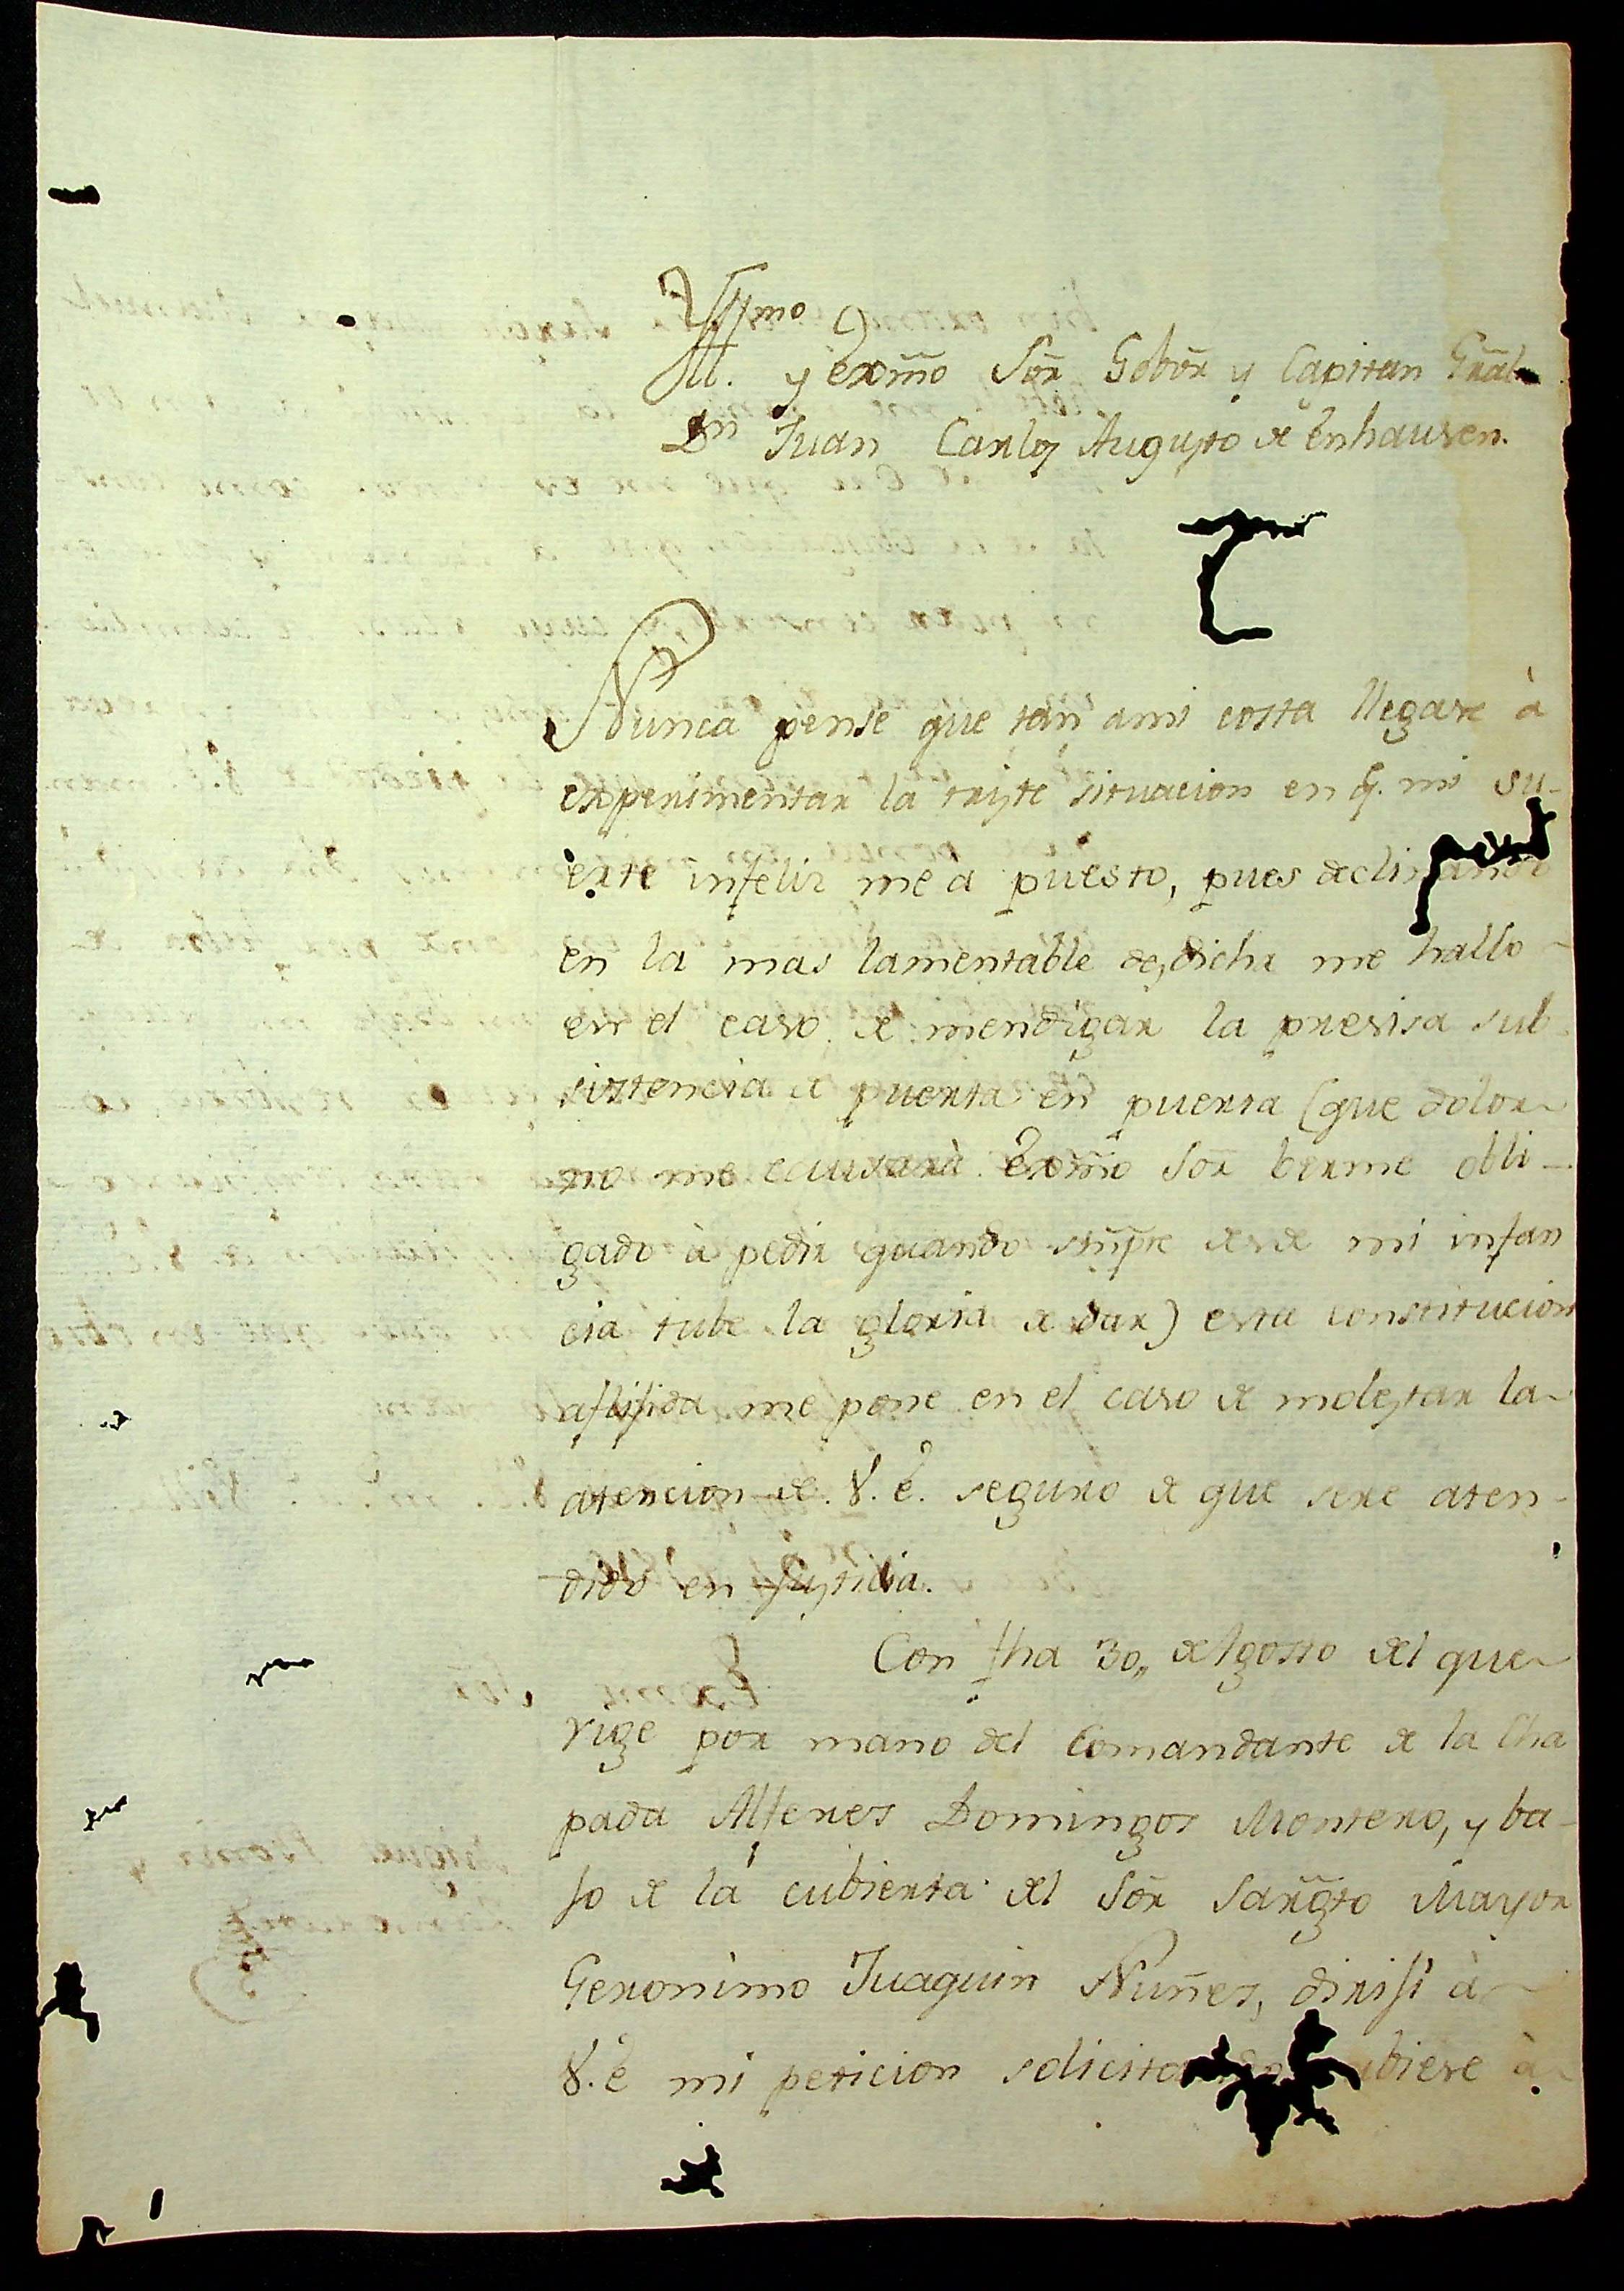 Yllmo
y exm̃o Sor̃ Gobor̃ y Capitan Grãl
Dn Juan Carlos Augusto de Enhausen.
Nunca pense que tan ami costa llegare à
experimentar la triste situacion en q. mi su-
erte infeliz me a puesto, pues declinando
en la mas lamentable desdicha me hallo
en el caso de mendigar la presisa sub
sistencia de puerta en puerta (que dolor
no me causarà Exm̃o Sor̃ berme obli-
gado à pedir quando siñpre desde mi infan
cia tube la gloria de dar) esta constitucion
aflijida me pone en el caso de molestar la
atencion de V. E. seguro de que sere aten-
dido en Justicia.
Con fha 30,, de Agosto del que
rige por mano del Comandante de la Cha
pada Alferes Domingos Montero, y ba-
jo de la cubierta del Sor̃ Sarg̃to Mayor
Geronimo Juaquin Nuñes, diriji à
V. E mi peticion solicitando ubiese à